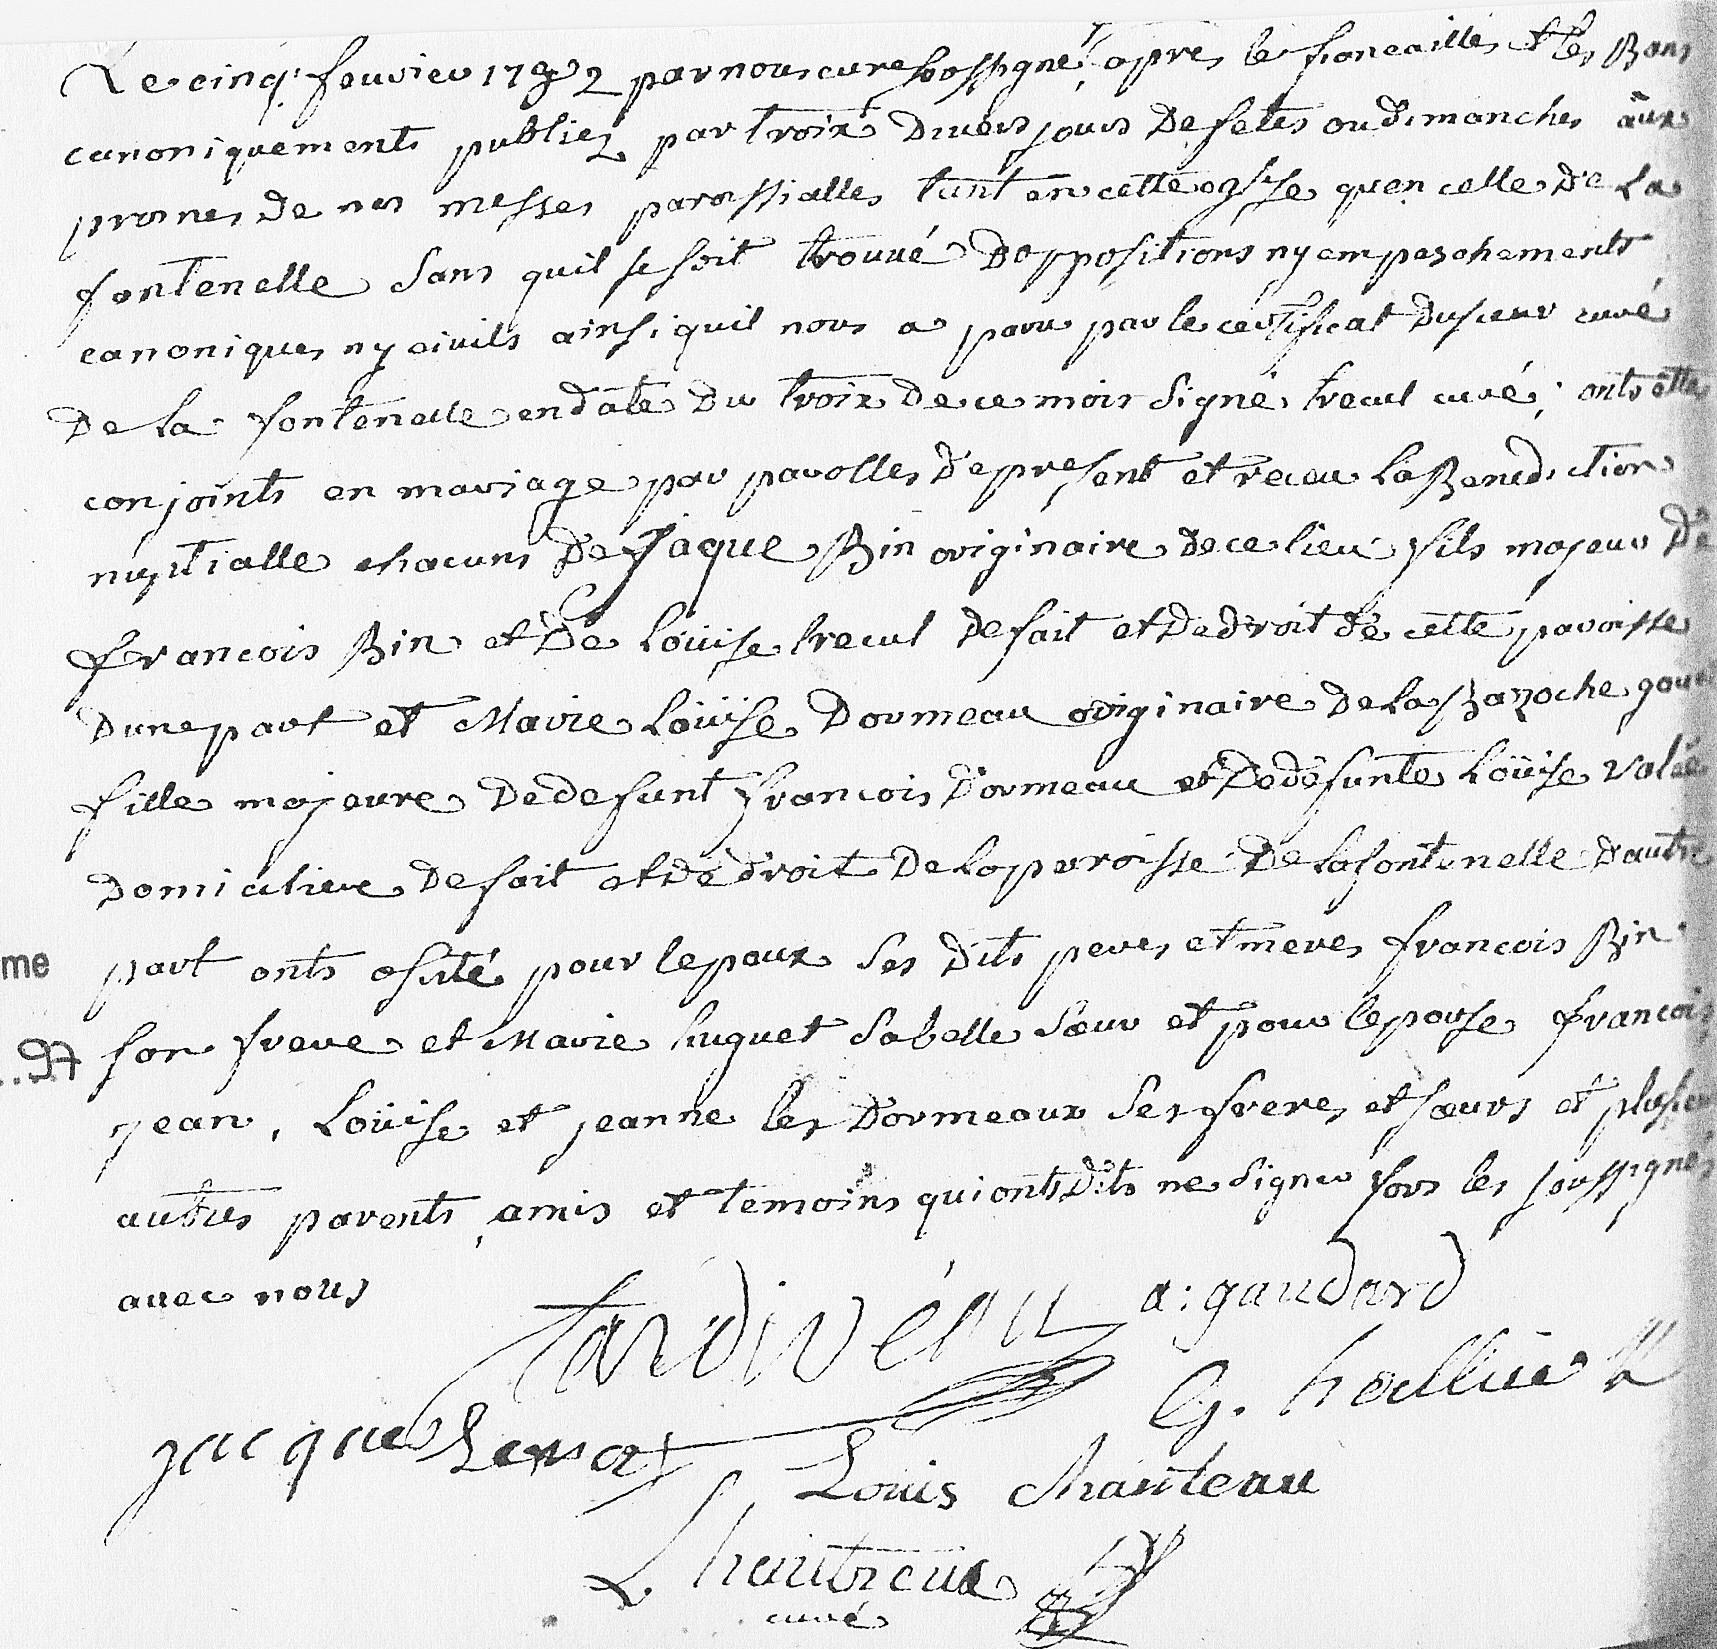 Le cinq feuvier 1792 par nous cure soussigné, apres le fiancailles et les Bans
canoniquements publiez par troix divers jours De fetes ou dimanches aux
prosnes de nos messes paroissialles tant en cette eglise quen celle De La
fontenelle sans quil se soit trouué Doppositions ny empeschements
canoniques ny ciuils ainsi quil nous a paru par le certificat Dusieur curé
De La fontenelle en date Du troix De ce mois signé trecul curé; onts etté
conjoints en mariage par parolles De present et receu La Benediction
nuptialle chacuns De Jaque Bin originaire de ce lieu fils majeur De
francois Bin et De Loüise trecul De fait et De droit de cette paroisse
Dune part et Marie Loüise Dormeau originaire De La Bazoche gouet
fille majeure De defunt francois Dormeau et De defunte Loüise valée
Domiciliere De fait et De droit De La paroisse De La fontenelle Dautre
part onts assité pour lepoux ses dits peres et meres francois Bin
son frere et Marie huguet sa belle sœur et pour lepouse francois
jean, Loüise et jeanne les Dormeaux ses freres et sœurs et plusieurs
autres parents, amis et temoins qui onts dits ne signer fors les soussignés
auec nous
me
..97
tardivéau a: gaudard
G. hallier
jacque
Louis Chanteau
L hautreux
curé